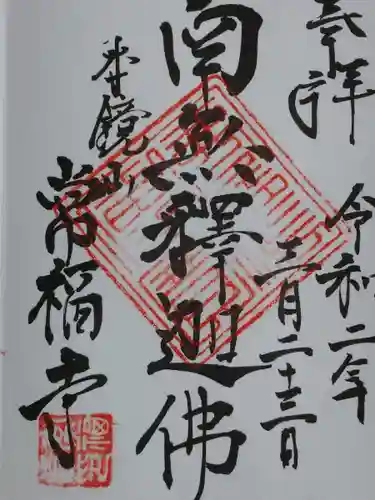 奉拝
令和二年
三月二十三日
南無釋迦佛
鏡山
常福寺